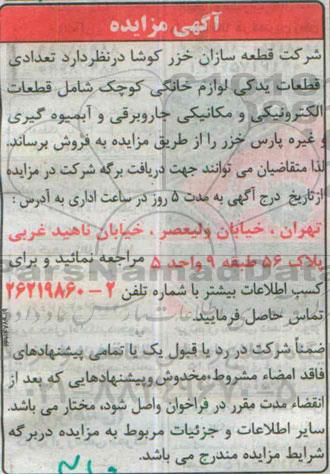 آگهی مزایده
شرکت قطعه سازان خزر کوشا درنظردارد تعدادی
قطعات یدکی لوازم خانگی کوچک شامل قطعات
الکترونیکی و مکانیکی جاروبرقی و آبمیوه گیری
و غیره پارس خزر را از طریق مزایده به فروش برساند.
لذا متقاضیان می توانند جهت دریافت برگه شرکت در مزایده
ازتاریخ درج آگهی به مدت ۵ روز در ساعت اداری به آدرس :
تهران ، خیابان ولیعصر ، خیابان ناهید غربی
پلاک ۵۶ طبقه ۹ واحد ۵ مراجعه نمائید و برای
کسب اطلاعات بیشتر با شماره تلفن ۲-۲۶۲۱۹۸۶۰
تماس حاصل فرمایید.
ضمناً شرکت در رد یا قبول یک یا تمامی پیشنهادهای
فاقد امضاء مشروط،مخدوش وپیشنهادهایی که بعد از
انقضاء مدت مقرر در فراخوان واصل شود، مختار می باشد.
سایر اطلاعات و جزئیات مربوط به مزایده دربرگه
شرایط مزایده مندرج می باشد.
ParsNamadData